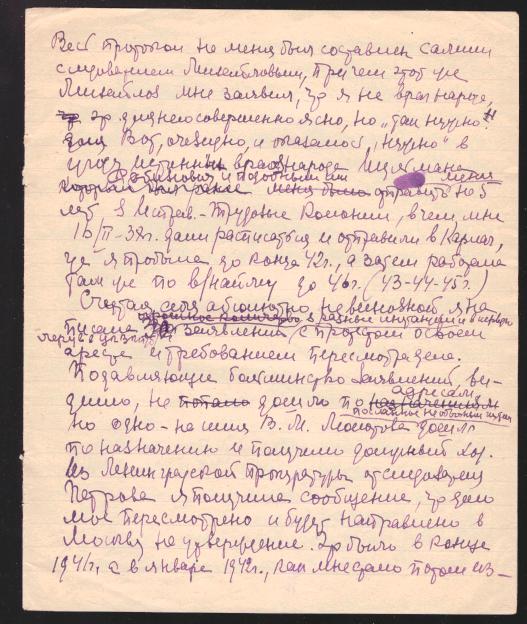 Весь протокол на меня был составлен самим
следователем Михайловым, причем этот же
Михайлов мне заявил, что я не враг народа,
это для него совершенно ясно, но „так нужно“.
Вот, очевидно, и оказалось „нужно“ в
угоду истинным врагам народа
и подобным им меня
отправить на 5
лет в Истрав.-Трудовые Колонии, в чем мне
16/II-38г. дали расписаться и отправили в Карлаг,
где я пробыла до конца 42г., а затем работала
там же по в/найму до 46г. (43-44-45г.)
Считая себя абсолютно невиновной, я на-
писала огромное количество в разные инстанции и в первую
заявлений с протестом о своем
аресте и требованием пересмотра дела.
Подавляющее большинство заявлений, ви-
димо, не попало дошло по адресам
но одно - на имя В. М. Молотова дошло
по назначению и получило должный ход.
Из Ленинградской Прокуратуры от следователя
Петрова я получила сообщение, что дело
мое пересмотрено и будет направлено в
Москву на утверждение. Это было в конце
1941г. а в январе 1942г., как мне стало потом из-